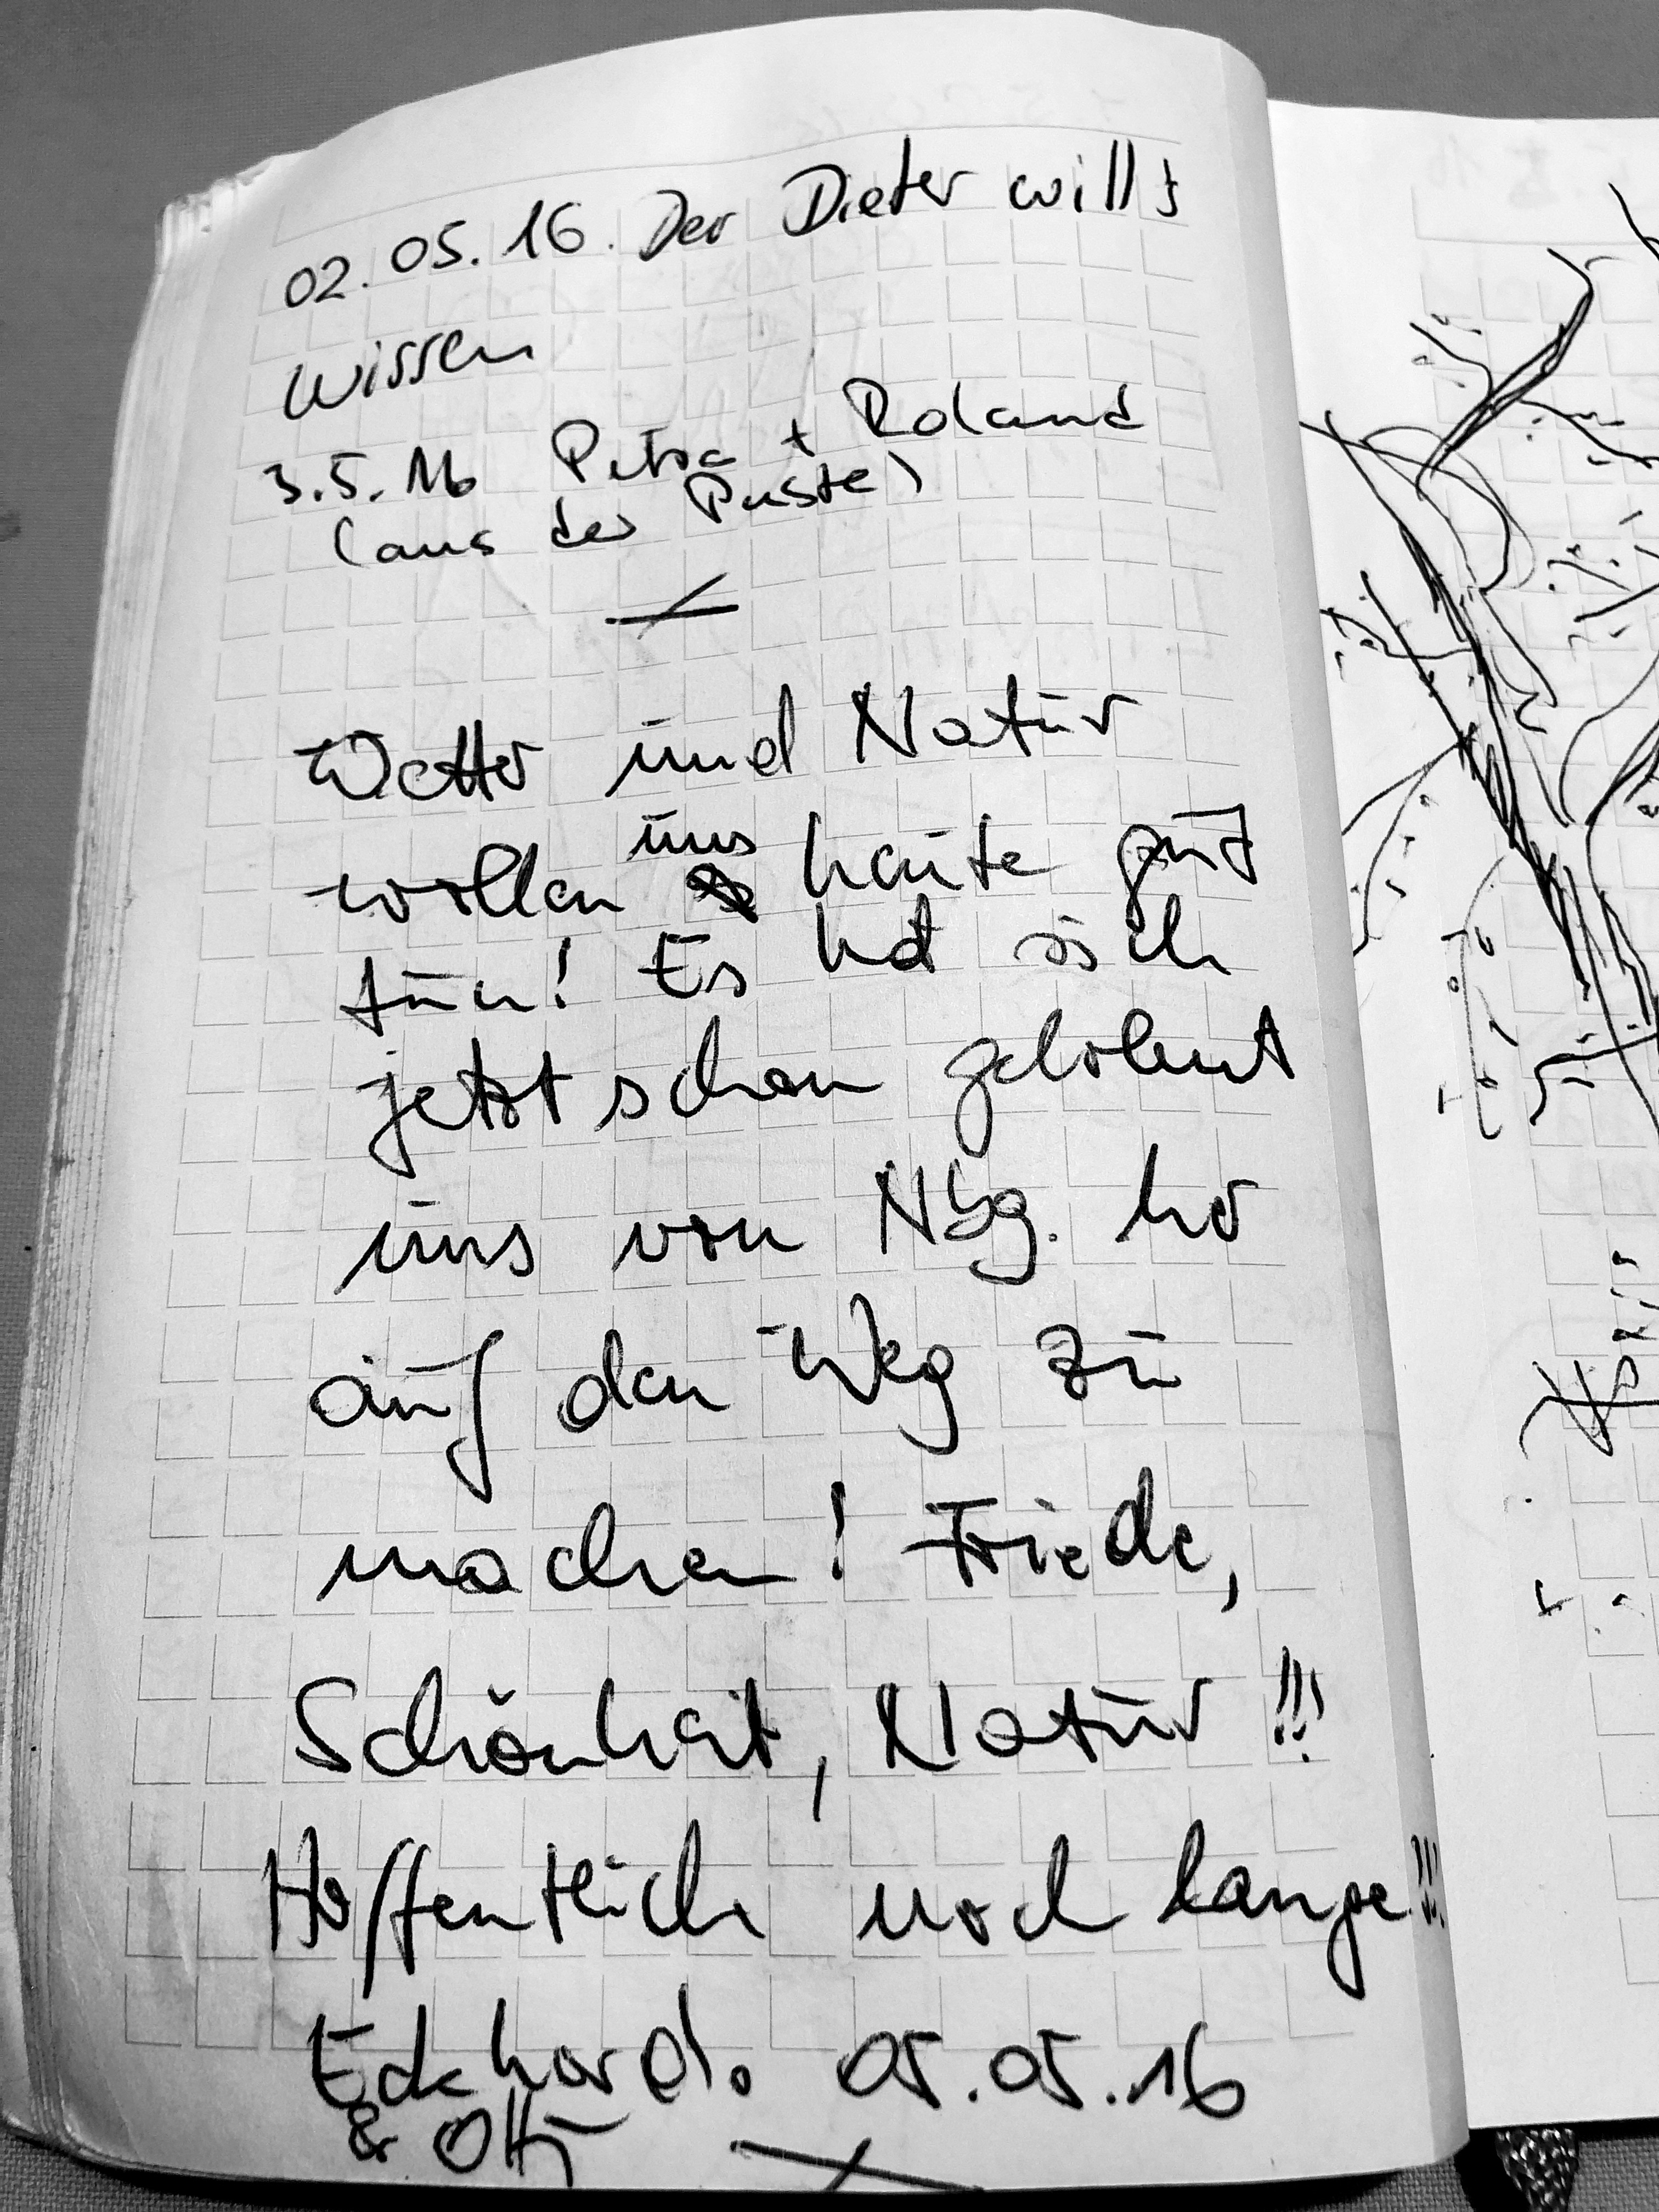 02.05.16. Der Dieter will's
wissen
3.5.16 Petra + Roland
(aus der Puste)
Wetter und Natur
wollen uns heute gut
tun! Es hat sich
jetzt schon gelohnt
uns von Nbg. her
auf den Weg zu
machen! Friede,
Schönheit, Natur!!!
Hoffentlich noch lange!!!
Eckhard. 05.05.16
&